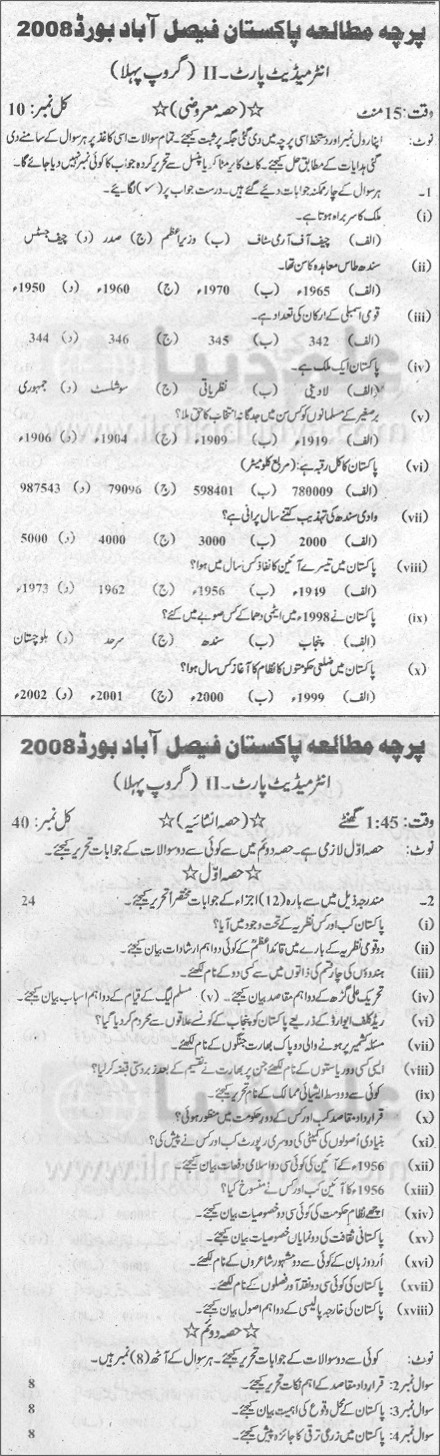 پرچہ مطالعہ پاکستان فیصل آباد بورڈ 2008
انٹرمیڈیٹ پارٹ۔ II (گروپ پہلا)
وقت: 15 منٹ ☆(حصہ معروضی)☆ کل نمبر: 10
نوٹ: اپنا رول نمبر اور دستخط اسی پرچہ میں دی گئی جگہ پر ثبت کیجئے۔ تمام سوالات اسی کاغذ پر ہر سوال کے سامنے دی
گئی ہدایات کے مطابق حل کیجئے۔ کاٹ کا نمبر نہیں دیا جائے گا۔
1۔ ہر سوال کے چار ممکنہ جوابات دیئے گئے ہیں۔ درست جواب پر (✓) لگائیے۔
(i) ملک کا سربراہ ہوتا ہے۔
(الف) چیف آف آرمی سٹاف (ب) وزیراعظم (ج) صدر (د) چیف جسٹس
(ii) سندھ طاس معاہدہ کا سن تھا۔
(الف) 1965ء (ب) 1970ء (ج) 1960ء (د) 1950ء
(iii) قومی اسمبلی کے ارکان کی تعداد ہے۔
(الف) 342 (ب) 345 (ج) 346 (د) 344
(iv) پاکستان ایک ملک ہے۔
(الف) لادینی (ب) نظریاتی (ج) سوشلسٹ (د) جمہوری
(v) برصغیر کے مسلمانوں کو کس سن میں جداگانہ انتخاب کا حق ملا؟
(الف) 1919ء (ب) 1909ء (ج) 1904ء (د) 1906ء
(vi) پاکستان کا کل رقبہ ہے: (مربع کلومیٹر)
(الف) 780009 (ب) 598401 (ج) 79096 (د) 987543
(vii) وادی سندھ کی تہذیب کتنے سال پرانی ہے؟
(الف) 2000 (ب) 3000 (ج) 4000 (د) 5000
(viii) پاکستان میں تیسرے آئین کا نفاذ کس سال میں ہوا؟
(الف) 1949ء (ب) 1956ء (ج) 1962 (د) 1973ء
(ix) پاکستان نے 1998ء میں ایٹمی دھماکے کس صوبے میں کئے؟
(الف) پنجاب (ب) سندھ (ج) سرحد (د) بلوچستان
(x) پاکستان میں ضلعی حکومتوں کا نظام کا آغاز کس سال ہوا؟
(الف) 1999ء (ب) 2000ء (ج) 2001ء (د) 2002ء
پرچہ مطالعہ پاکستان فیصل آباد بورڈ 2008
انٹرمیڈیٹ پارٹ۔ II (گروپ پہلا)
وقت: 1:45 گھنٹے ☆(حصہ انشائیہ)☆ کل نمبر: 40
نوٹ: حصہ اوّل لازمی ہے۔ حصہ دوئم میں سے کوئی سے دو سوالات کے جوابات تحریر کیجئے۔
☆حصہ اوّل☆
2۔ مندرجہ ذیل میں سے بارہ (12) اجزاء کے جوابات مختصراً تحریر کیجئے۔ 24
(i) پاکستان کب اور کس نظریہ کے تحت وجود میں آیا؟
(ii) دو قومی نظریہ کے بارے میں قائداعظمؒ کے کوئی دو اہم ارشادات بیان کیجئے۔
(iii) ہندوؤں کی چار قسم کی ذاتوں میں سے کسی دو کے نام لکھئے۔
(iv) تحریک علی گڑھ کے دو اہم مقاصد بیان کیجئے۔ (v) مسلم لیگ کے قیام کے دو اہم اسباب بیان کیجئے۔
(vi) ریڈ کلف ایوارڈ کے ذریعے پاکستان کو پنجاب کے کونسے علاقوں سے محروم کر دیا گیا؟
(vii) مسئلہ کشمیر پر ہونے والی دو پاک بھارت جنگوں کے نام لکھئے۔
(viii) ایسی کسی دو ریاستوں کے نام لکھئے جن پر بھارت نے تقسیم کے بعد زبردستی قبضہ کر لیا؟
(ix) کوئی سے دو وسط ایشیائی ممالک کے نام تحریر کیجئے۔
(x) قرارداد مقاصد کب اور کس کے دور حکومت میں منظور ہوئی؟
(xi) بنیادی اُصولوں کی کمیٹی کی دوسری رپورٹ کب اور کس نے پیش کی؟
(xii) 1956ء کے آئین کی کوئی سی دو اسلامی دفعات بیان کیجئے۔
(xiii) 1956ء کا آئین کب اور کس نے منسوخ کیا؟
(xiv) اچھے نظام حکومت کی کوئی سی دو خصوصیات بیان کیجئے۔
(xv) پاکستانی ثقافت کی دو نمایاں خصوصیات بیان کیجئے۔
(xvi) اُردو زبان کے کوئی سے دو مشہور شاعروں کے نام لکھئے۔
(xvii) پاکستان کی کوئی سی دو نقد آور فصلوں کے نام لکھئے۔
(xviii) پاکستان کی خارجہ پالیسی کے دو اہم اصول بیان کیجئے۔
☆حصہ دوئم☆
نوٹ: کوئی سے دو سوالات کے جوابات تحریر کیجئے۔ ہر سوال کے آٹھ (8) نمبر ہیں۔
سوال نمبر 2: قرارداد مقاصد کے اہم نکات تحریر کیجئے۔ 8
سوال نمبر 3: پاکستان کے محل وقوع کی اہمیت بیان کیجئے۔ 8
سوال نمبر 4: پاکستان میں زرعی ترقی کا جائزہ پیش کیجئے۔ 8